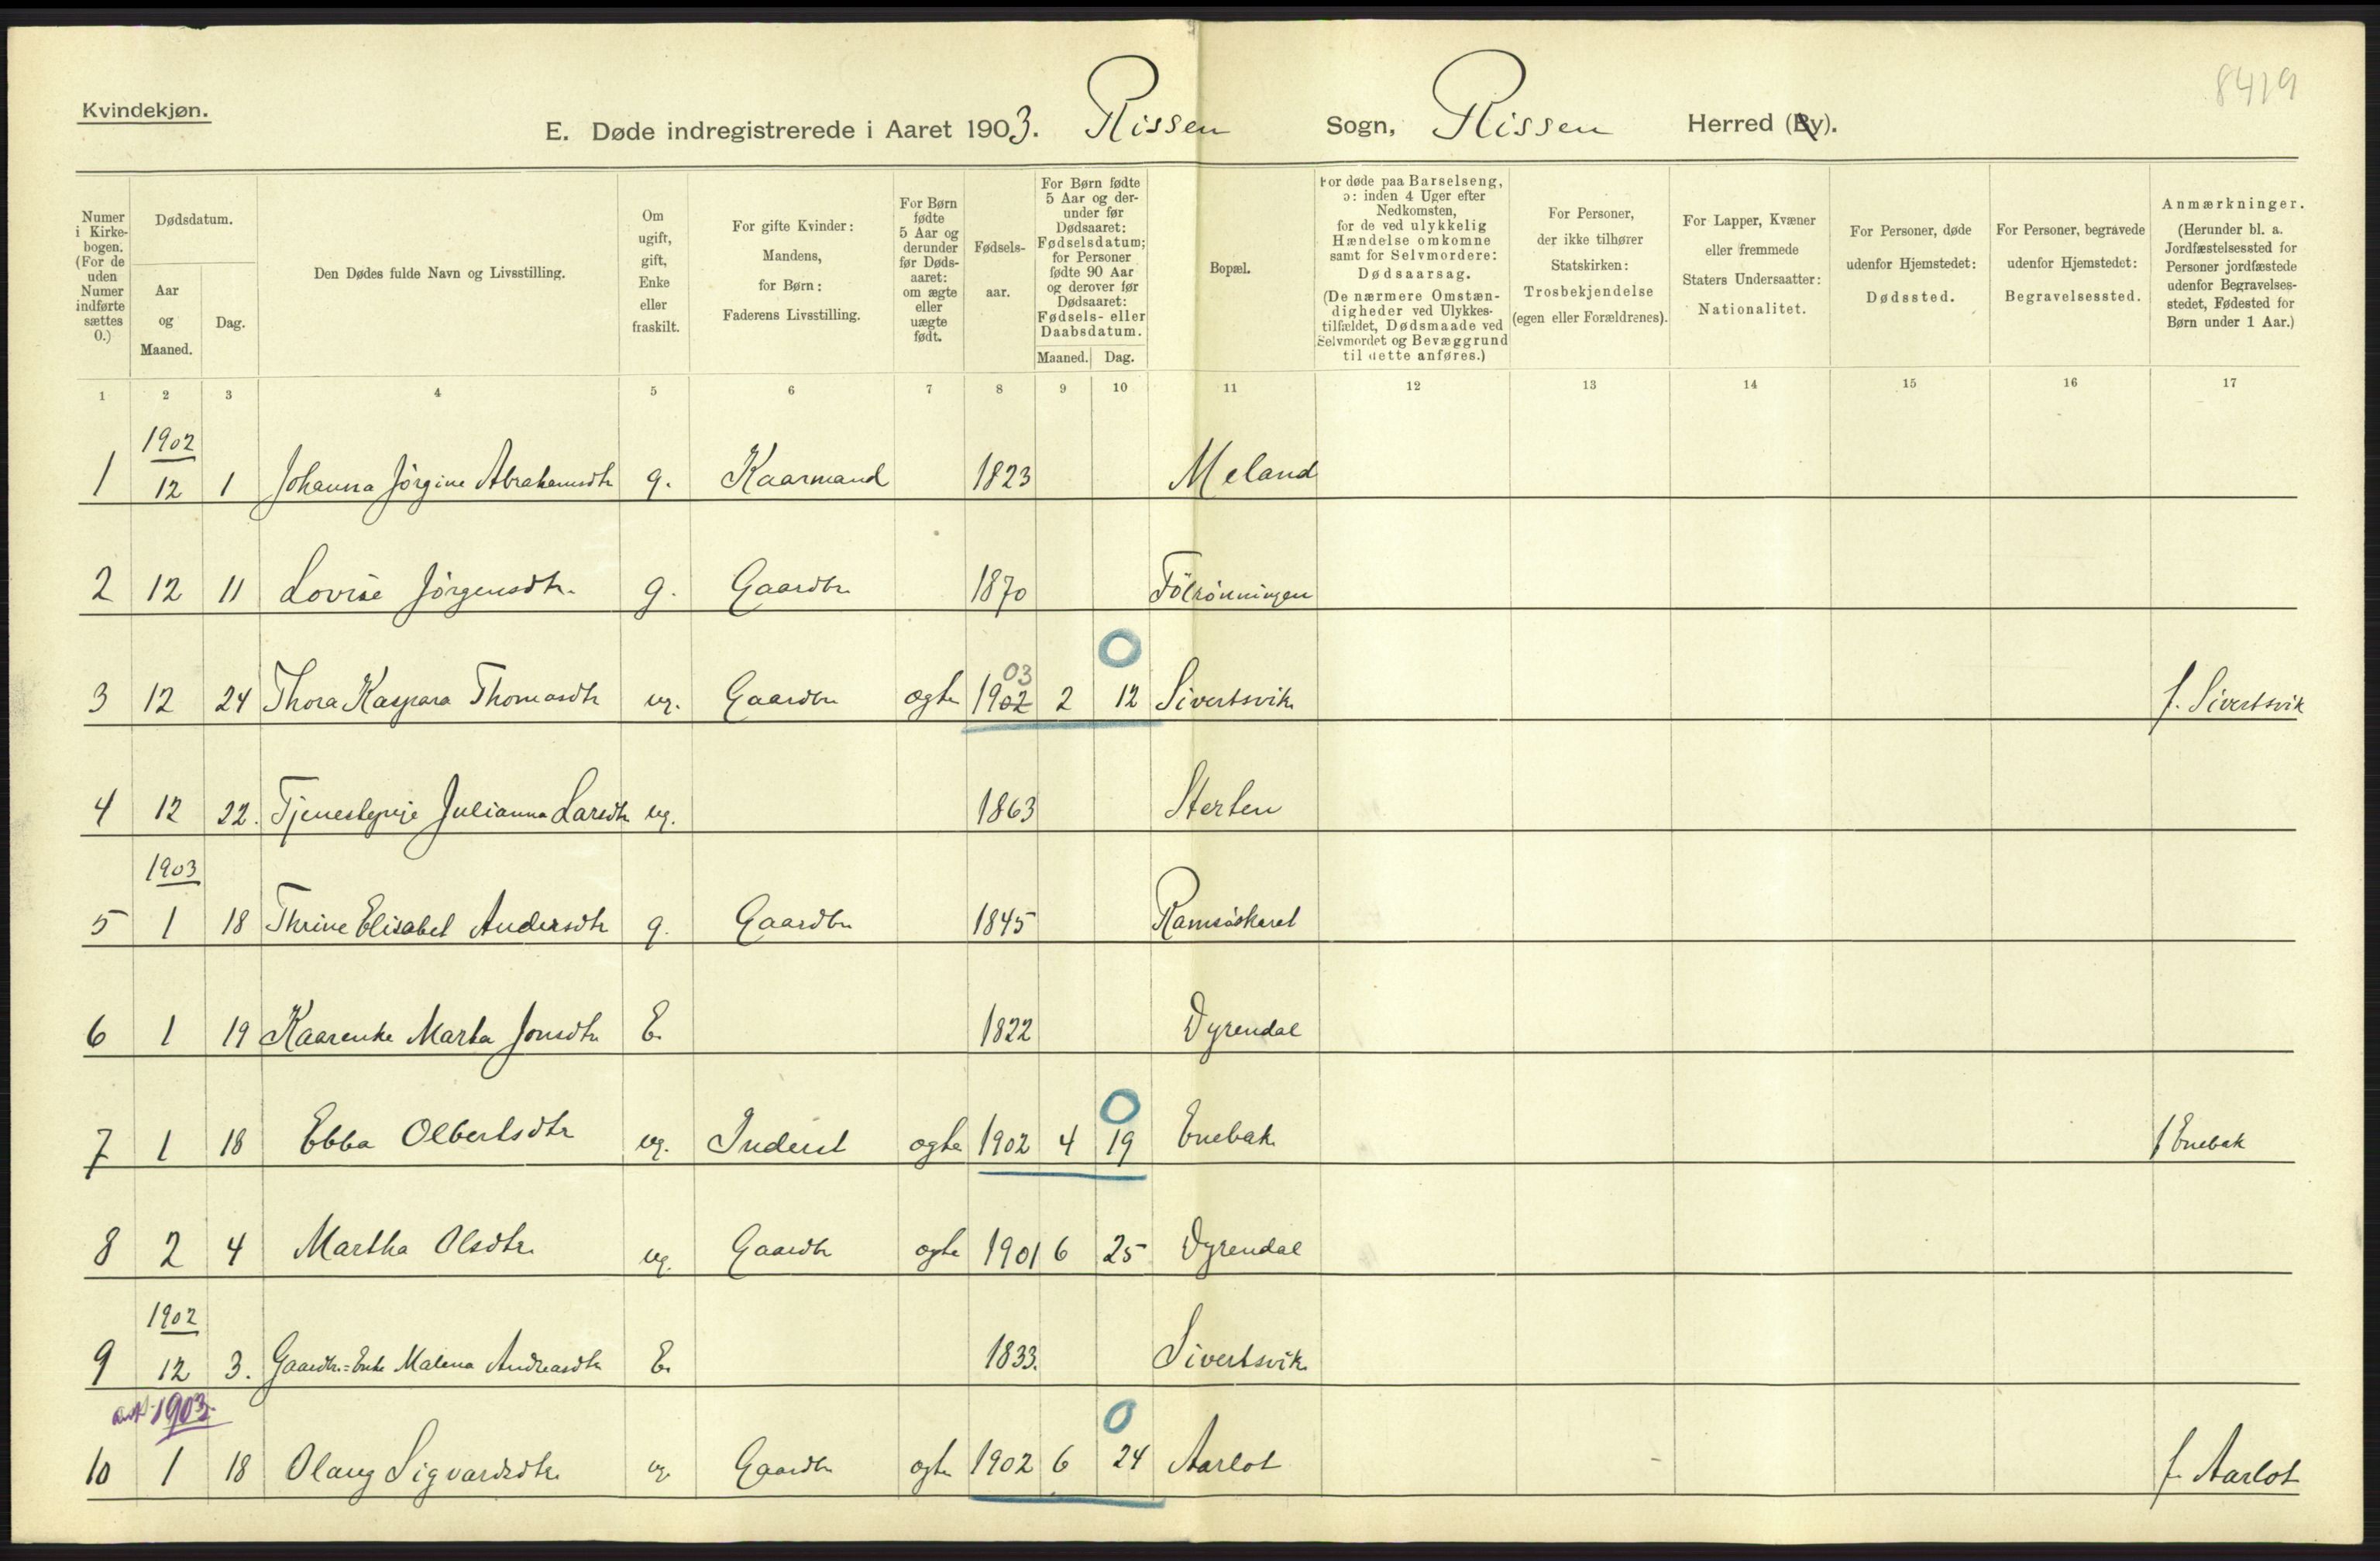 8419
Kvindekjøn.
E. Døde indregistrerede i Aaret 1903. Rissen Sogn, Rissen Herred (By).
Numer i Kirke-bogen. (For de uden Numer indførte sættes 0.)
Dødsdatum.
Aar og Maaned.
Dag.
Den Dødes fulde Navn og Livsstilling.
Om ugift, gift, Enke eller fraskilt.
For gifte Kvinder: Mandens, for Børn: Faderens Livsstilling.
For Børn fødte 5 Aar og derunder før Døds-aaret: om ægte eller uægte født.
Fødsels-aar.
For Børn fødte 5 Aar og der-under før Dødsaaret: Fødselsdatum; for Personer fødte 90 Aar og derover før Dødsaaret: Fødsels- eller Daabsdatum.
Maaned. Dag.
Bopæl.
For døde paa Barselseng, ɔ: inden 4 Uger efter Nedkomsten, for de ved ulykkelig Hændelse omkomne samt for Selvmordere: Dødsaarsag. (De nærmere Omstæn-digheder ved Ulykkes-tilfældet, Dødsmaade ved Selvmordet og Bevæggrund til dette anføres.)
For Personer, der ikke tilhører Statskirken: Trosbekjendelse (egen eller Forældrenes).
For Lapper, Kvæner eller fremmede Staters Undersaatter: Nationalitet.
For Personer, døde udenfor Hjemstedet: Dødssted.
For Personer, begravede udenfor Hjemstedet: Begravelsessted.
Anmærkninger. (Herunder bl. a. Jordfæstelsessted for Personer jordfæstede udenfor Begravelses-stedet, Fødested for Børn under 1 Aar.)
1 2 3 4 5 6 7 8 9 10 11 12 13 14 15 16 17
1902
1 12 1 Johanna Jörgine Abrahamsdtr g. Kaarmand 1823 Meland
2 12 11 Lovise Jörgensdtr. g. Gaardbr 1870 Fölrönningen
03
3 12 24 Thora Kaspara Thomasdtr ug. Gaardbr ægte 1902 2 12 Sivertsvik f. Sivertsvik
4 12 22. Tjenestepige Julianna Larsdtr ug. 1863 Sterten
1903
5 1 18 Thrine Elisabet Andersdtr g. Gaardbr 1845 Ramsöskaret
6 1 19 Kaarenke Marta Jonsdtr E. 1822 Dyrendal
7 1 18 Ebba Olbertsdtr ug. Inderst ægte 1902 4 19 Enebak f Enebak
8 2 4 Martha Olsdtr. ug. Gaardbr ægte 1901 6 25 Dyrendal
1902
9 12 3. Gaardbr.=Enke Malena Andreasdtr E. 1833. Sivertsvik
1903
10 1 18 Olaug Sigvardsdtr. ug Gaardbr ægte 1902 6 24 Aarlot f. Aarlot